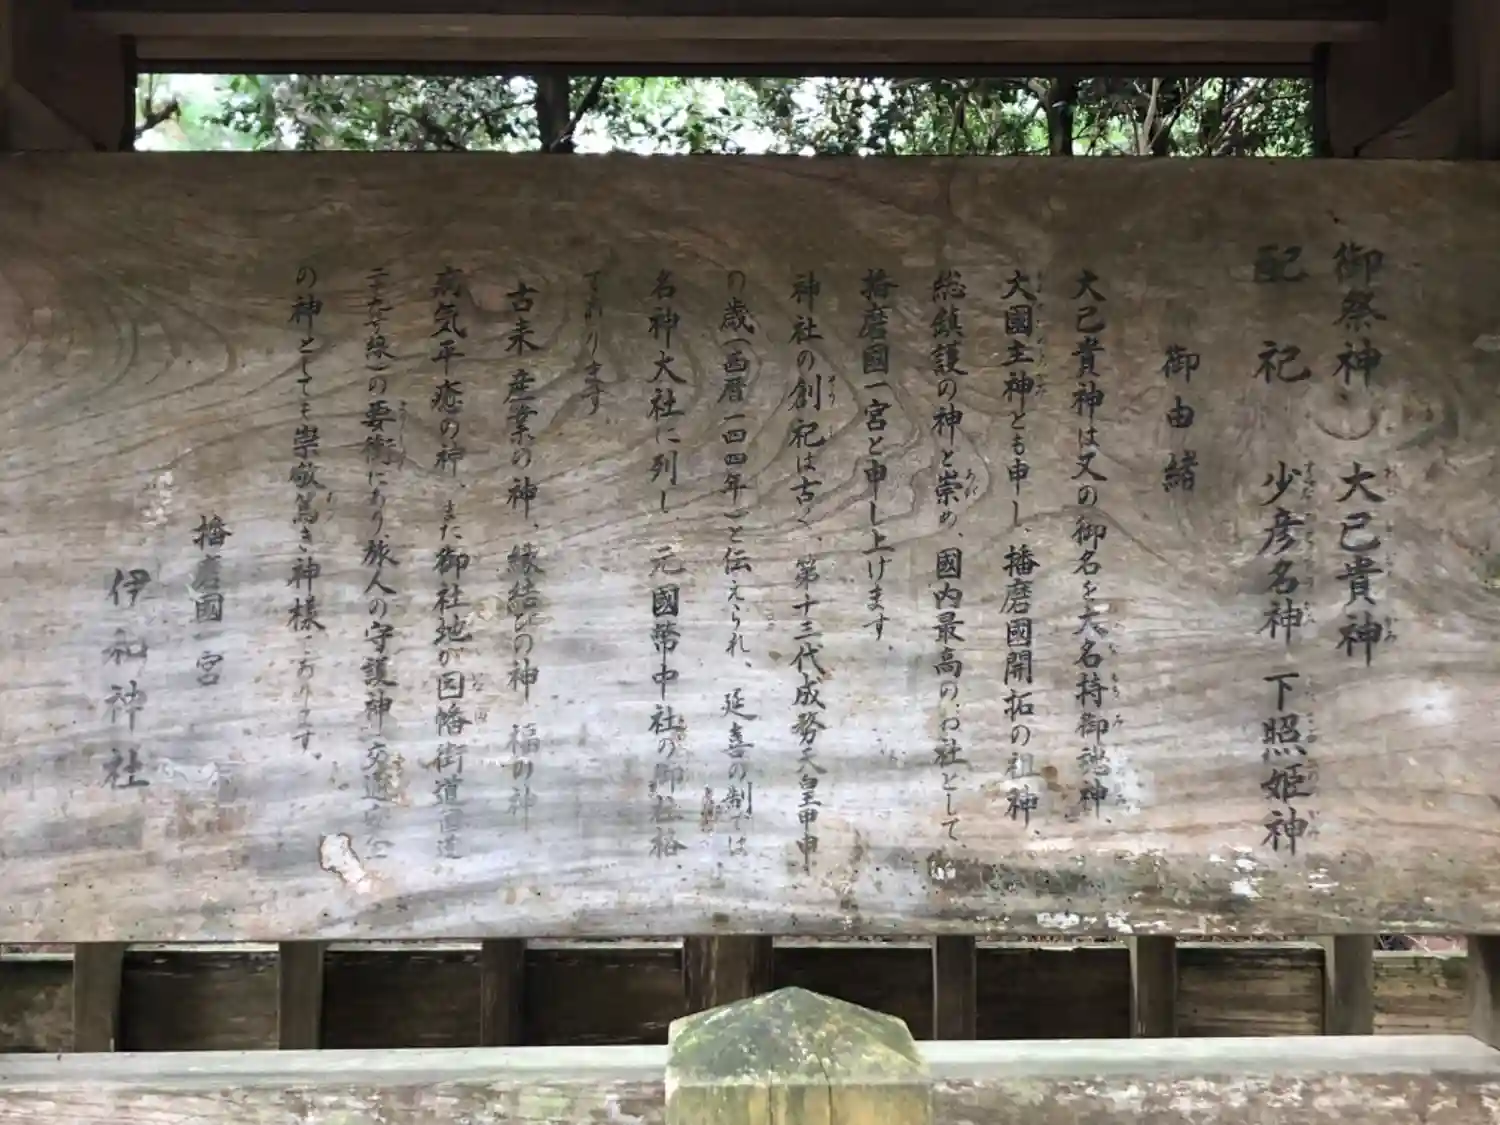 御祭神 大己貴神
配祀 少彦名神 下照姫神
御由緒
大己貴神は又の御名を大名持御魂神、
大國主神とも申し、播磨國開拓の祖神、
総鎮護の神と崇め、國内最高のお社として
播磨國一宮と申し上げます。
神社の創祀は古く、第十三代成務天皇甲申
の歳(西暦一四四年)と伝えられ、延喜の制では
名神大社に列し、元國幣中社の御社格
ております
古来産業の神、縁結びの神 福の神
病気平癒の神、また御社地が因幡街道
の要衝にあり旅人の守護神、交通安全
の神としても崇敬篤き神様であります。
播磨國一宮
伊和神社